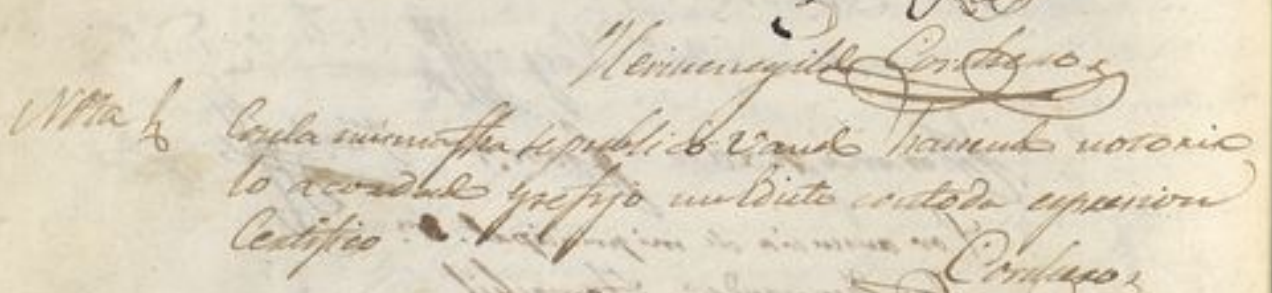 Hermenegildo Cordero
Nota Con la misma fha se publicó Vando haciendo notorio
lo acordado y se fijo un Edicto con toda expresion
Certifico
Cordero